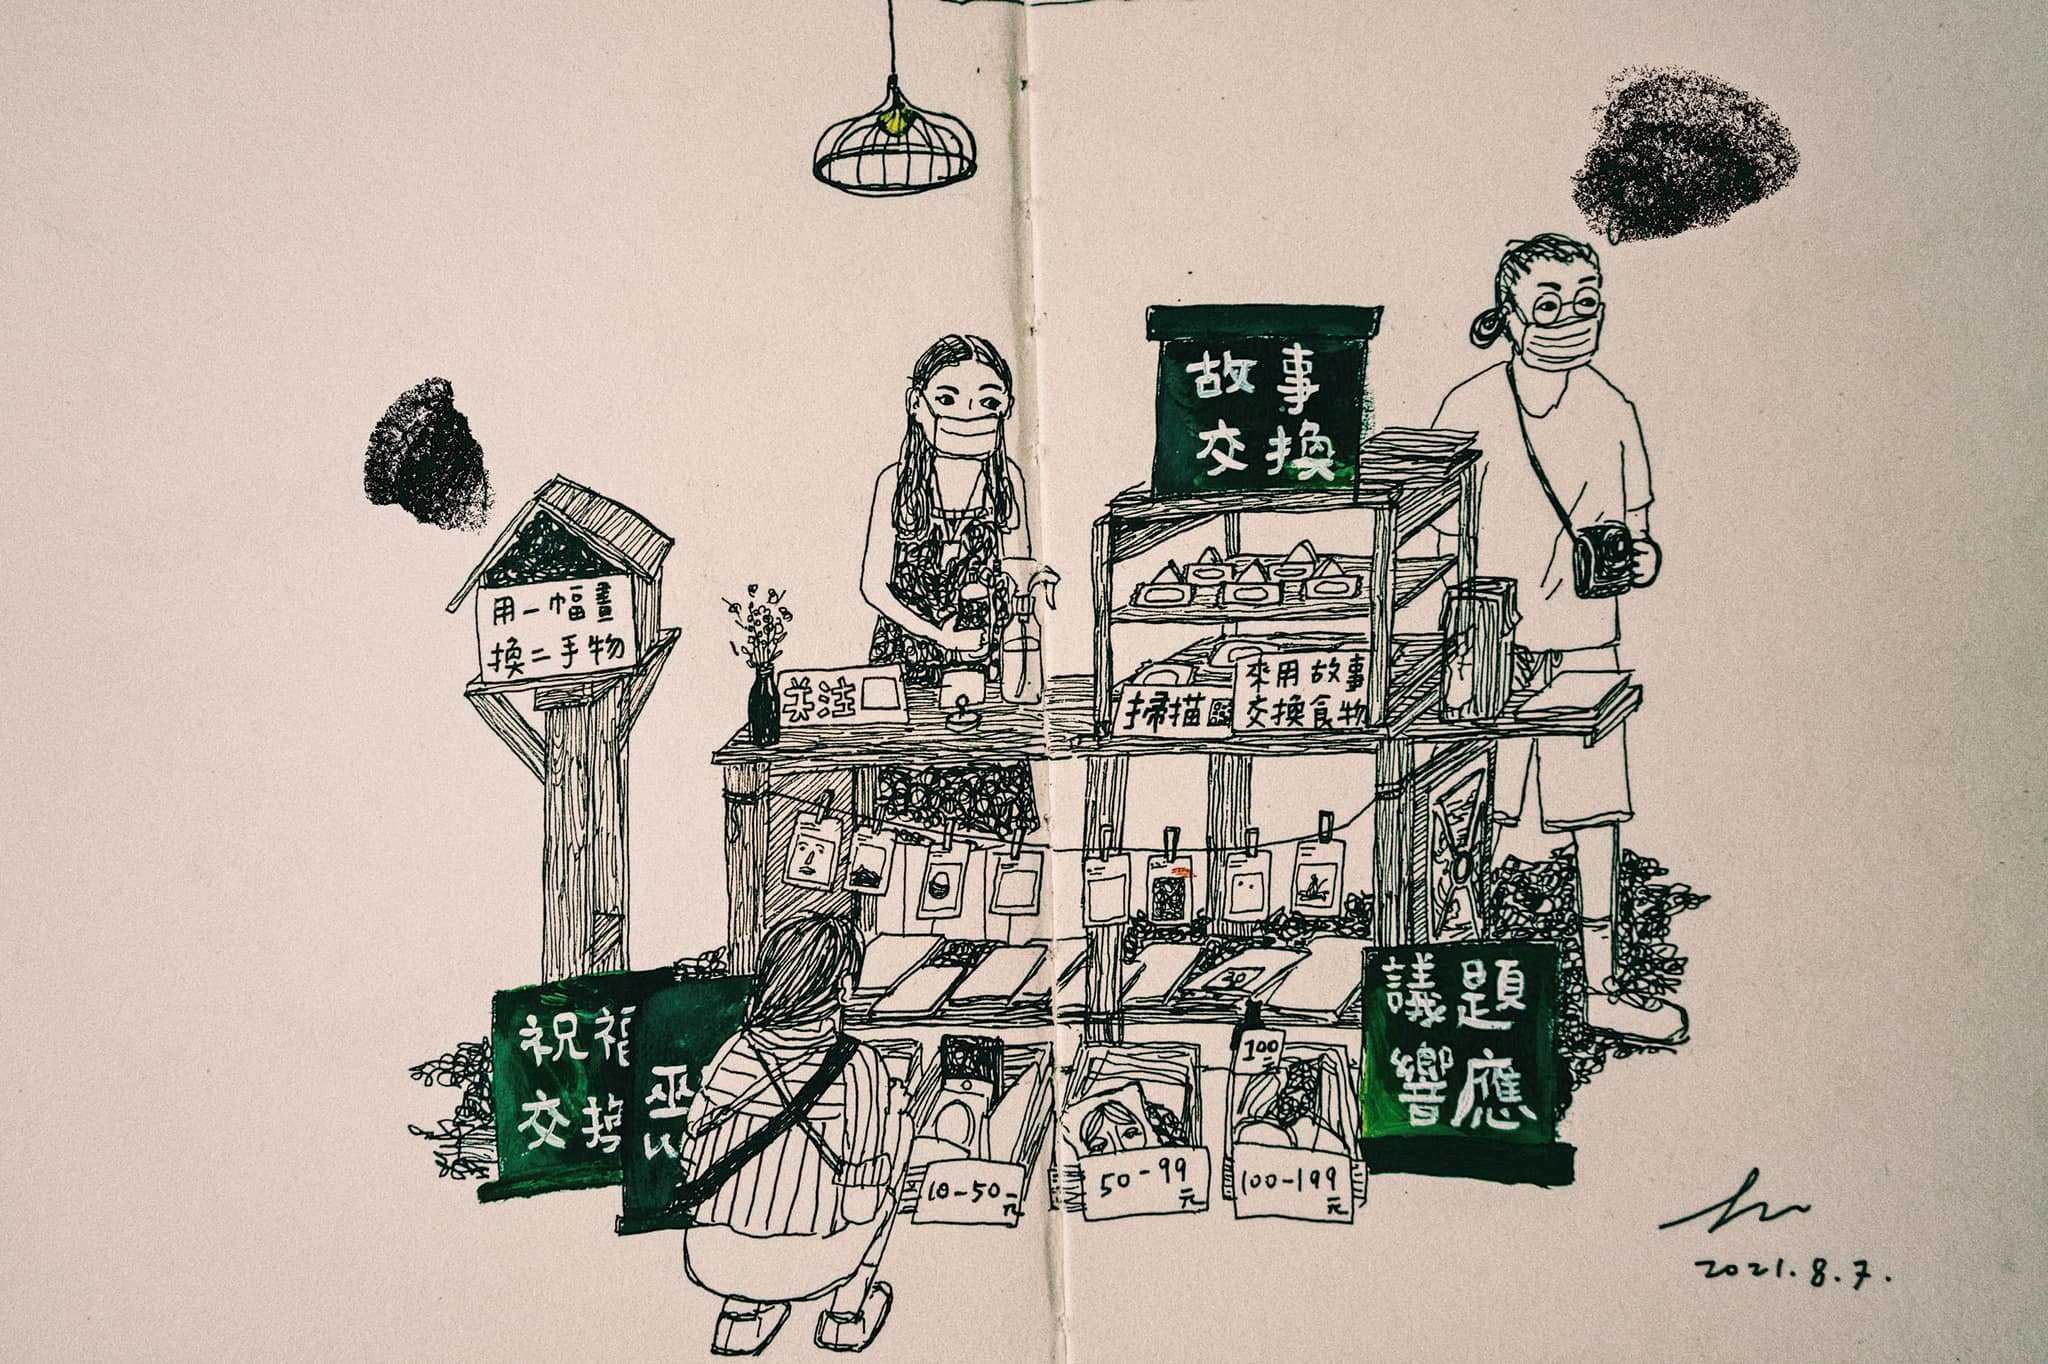 故事
交換
用一幅畫
換二手物
关注
掃描
來用故事
交換食物
30
祝福
交換
巫
議題
響應
100元
10-50元
50-99元
100-199元
2021.8.7.